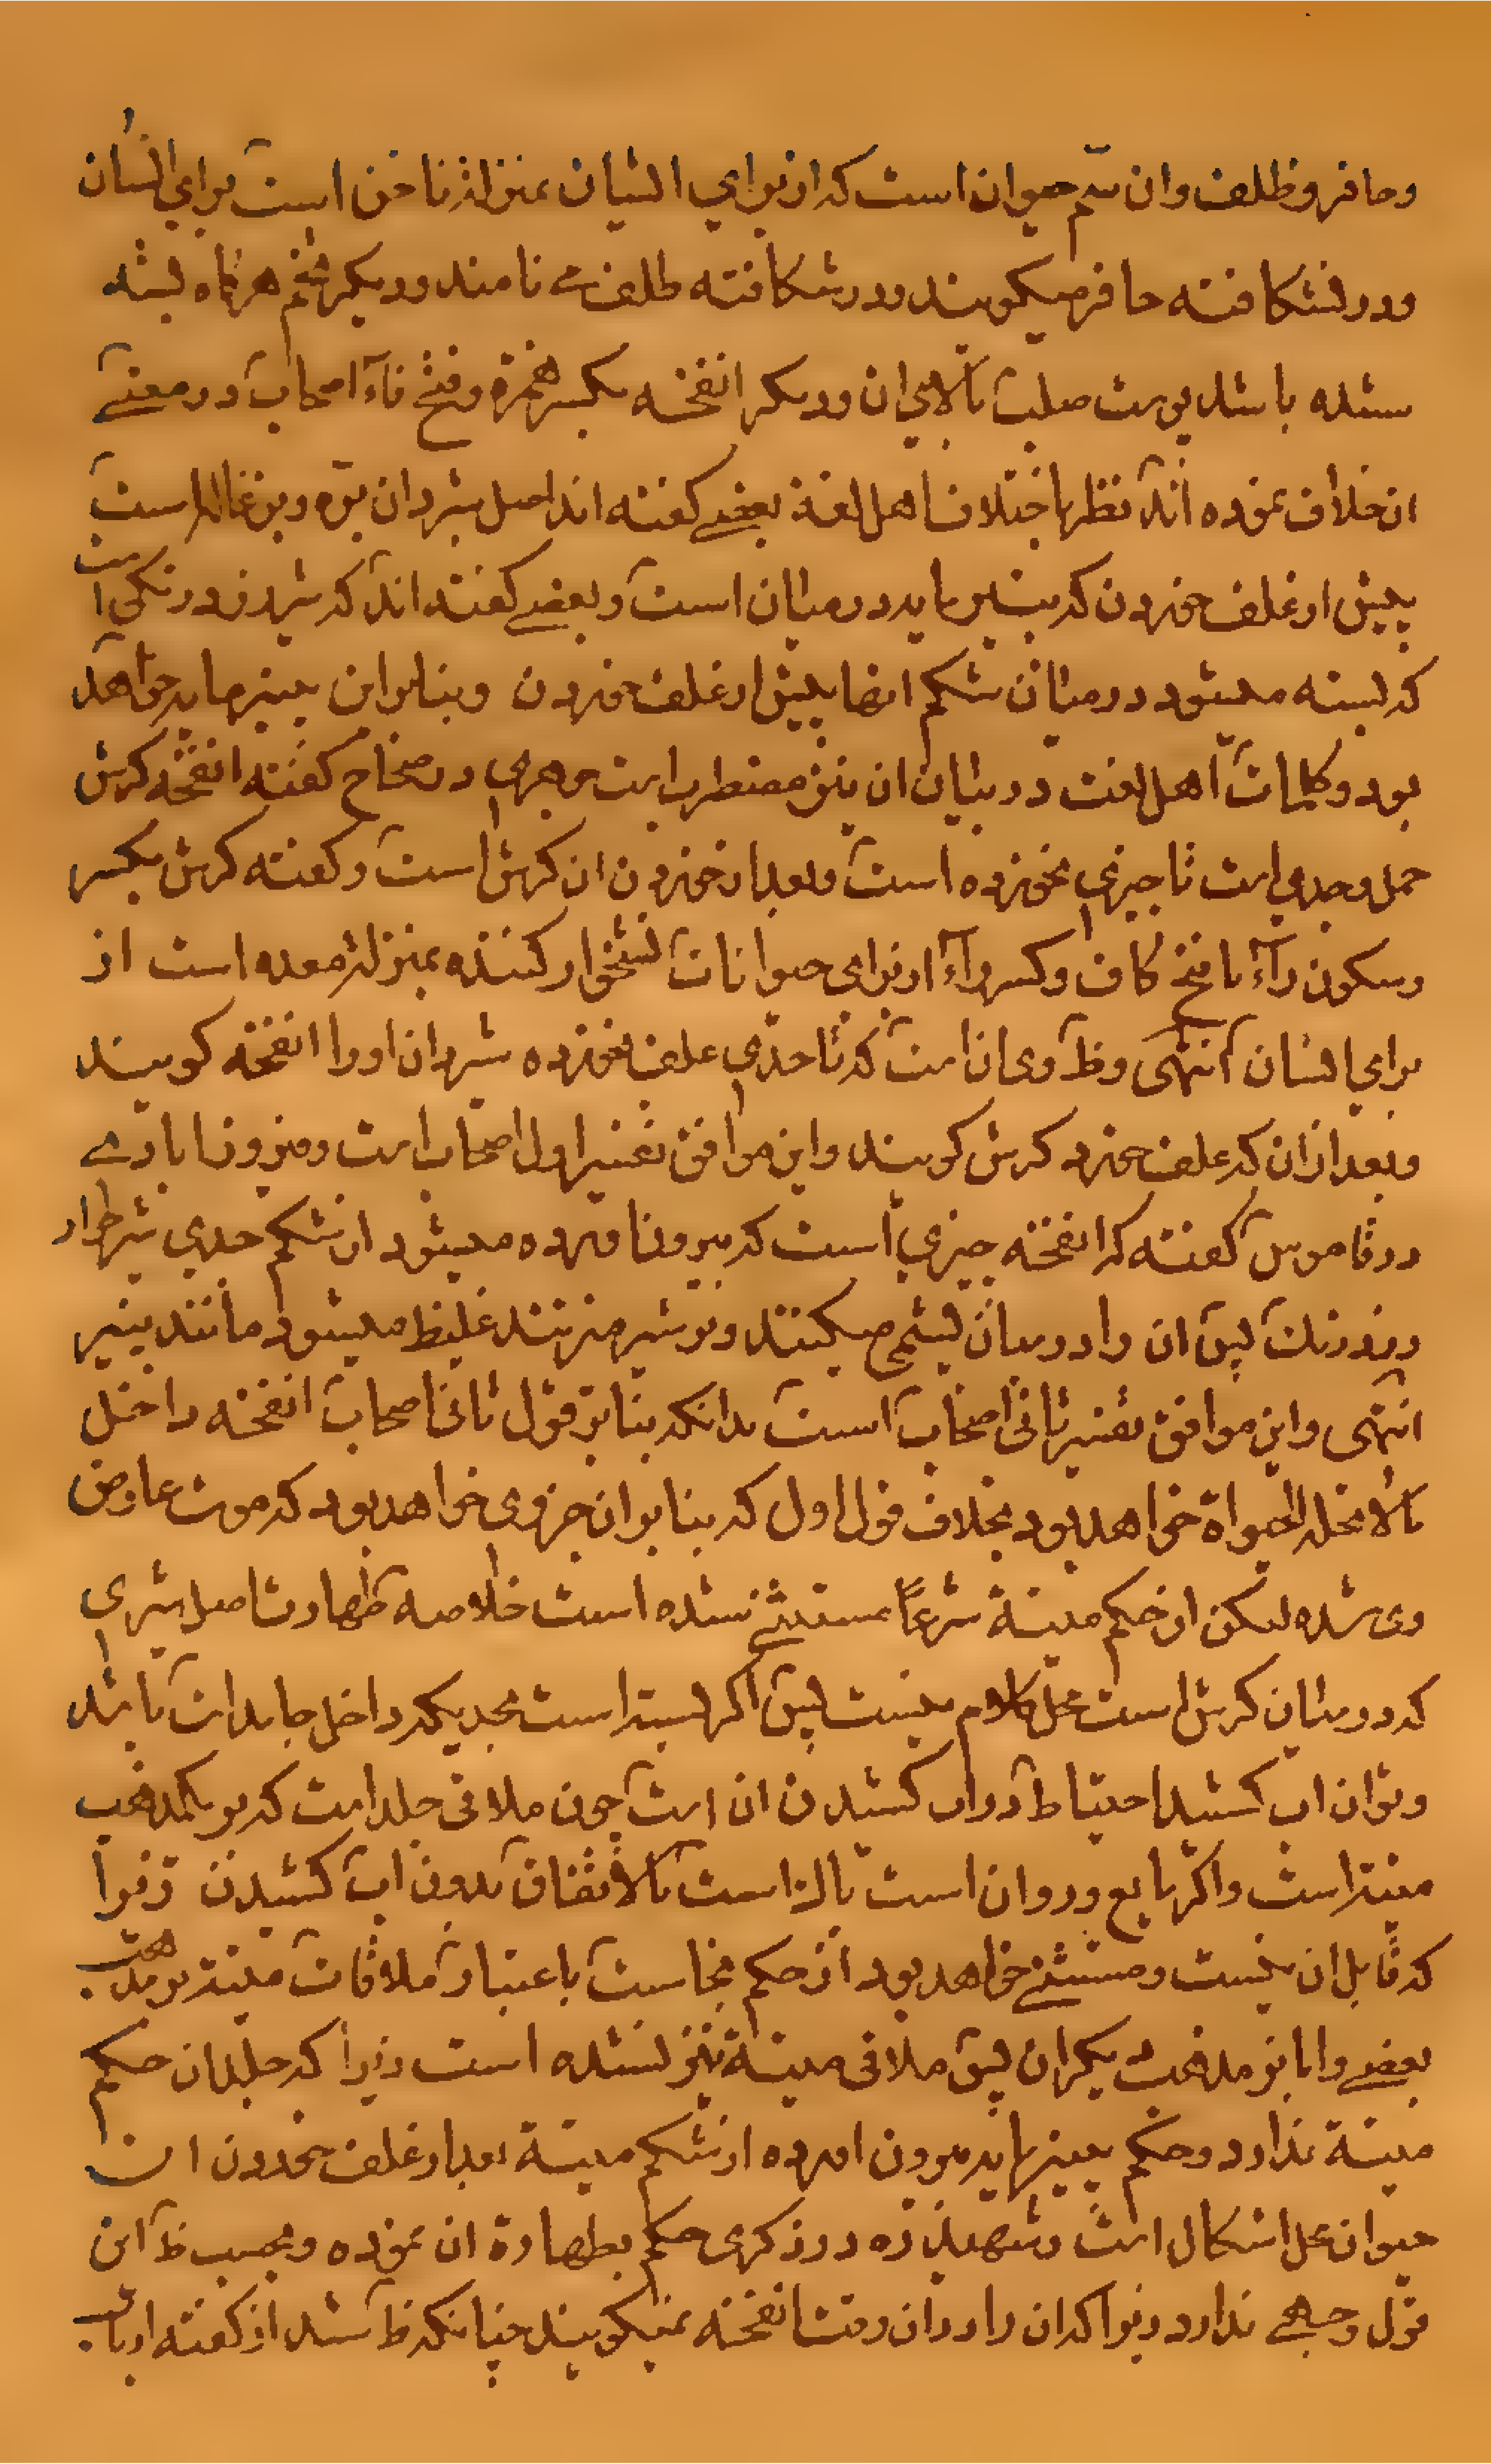 وحافر و ظلف وان سم حیوان است که از برای ایشان بمنزلهٔ ناخن است برای انسان
ودر نشکافته حافر میکویند ودر شکافته ظلف می نامند ودیکر تخم هرکاه بسته
شده باشد پوست صلب بالای ان ودیکر انفخه بکسر همزه وفتح فاء اصحاب در معنی
ان خلاف نموده اند نظر باختلاف اهل لغة بعضی کفته اند اصل شردان بره وبزغاله است
پیش از علف خوردن که پنیر مایه در میان است وبعضی کفته اند که شیر زرد رنکی است
که بسته میشود در میان شکم انها پیش از علف خوردن وبنابراین پنیر مایه خواهد
بود وکلمات اهل لغت در بیان ان نیز مضطرب است جوهری در صحاح کفته انفخه کرش
حمل وجدی است تا چیزی نخورده است وبعد از خوردن ان کرش است وکفته کرش بکسر
وسکون راء یا فتح کاف وکسر راء از برای حیوانات نشخوار کننده بمنزله معده است از
برای انسان انتهی وظ وی ان است که تا جدی علف نخورده شردان اورا انفخه کویند
وبعد ازان که علف خورد کرش کویند واین موافق تفسیر اول اصحاب است وفیروزابادی
در قاموس کفته که انفخه چیزی است که بیرون اورده میشود از شکم جدی شیرخوار
وزرد رنك پس ان را در میان پشمی میکنند وبر شیر میزنند غلیظ میشود مانند پنیر
انتهی واین موافق تفسیر ثانی اصحاب است بدانکه بنابر قول ثانی اصحاب انفخه داخل
مالا تحله الحیواة خواهد بود بخلاف قول اول که بنابر ان جزوی خواهد بود که موت عارض
وی شده لیکن از حکم میتة شرعاً مستثنی شده است خلاصه طهارت اصل شیری
که در میان کرش است محل کلام نیست پس اکر بسته است بحدیکه داخل جامدات باشد
وتوان اب کشید احتیاط در اب کشیدن ان است چون ملاقی جلد است که بر یکمذهب
میته است واکر مایع وروان است پاك است بالاتفاق بدون اب کشیدن زیرا
که قابل ان نیست ومستثنی خواهد بود از حکم نجاست باعتبار ملاقات میته بر مذهب
بعضی واما بر مذهب دیکران پس ملاقی میتة نیز نشده است زیرا که جلد ان حکم
میتة ندارد وحکم پنیر مایه بیرون امده از شکم میتة بعد از علف خوردن ان
حیوان محل اشکال است وشهید ره در ذکری حکم بطهارة ان نموده وبحسب ظ این
قول وجهی ندارد زیرا که ان را در ان وقت انفخه نمیکویند چنانکه ظ شد از کفته ارباب